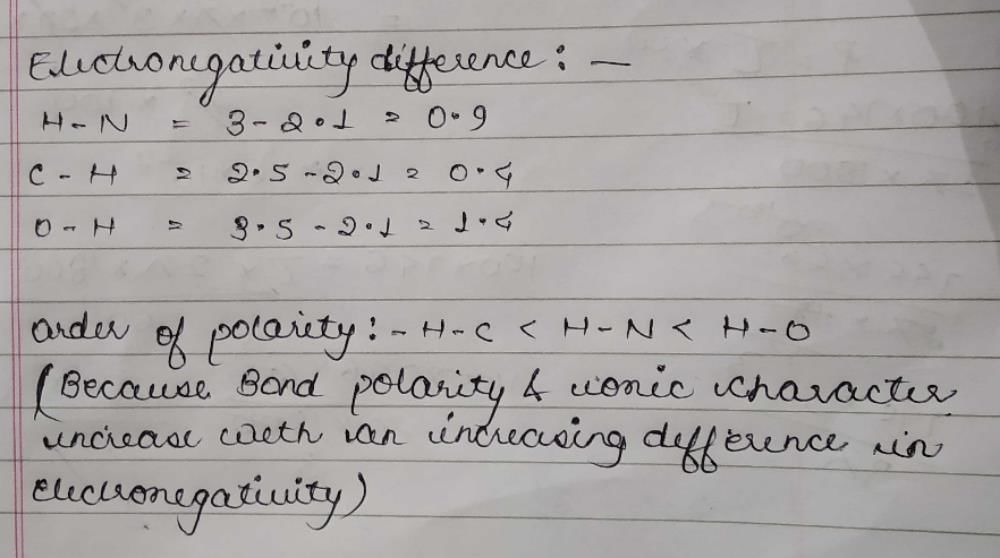 Electronegativity difference : —
H - N = 3 - 2.1 = 0.9
C - H = 2.5 - 2.1 = 0.4
O - H = 3.5 - 2.1 = 1.4
order of polarity : - H - C < H - N < H - O
(Because Bond polarity & ionic character
increase with an increasing difference in
electronegativity)